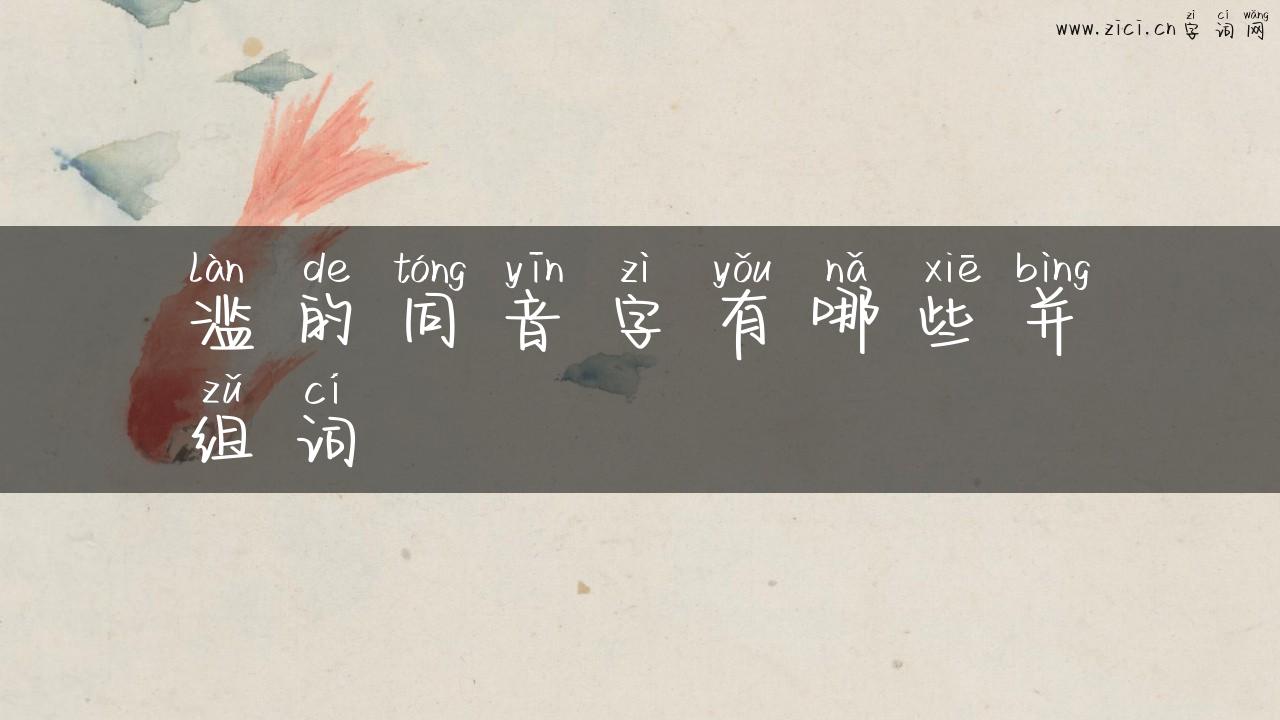 zì cí wǎng
www.zici.cn 字词网
làn de tóng yīn zì yǒu nǎ xiē bìng
滥的同音字有哪些并
zǔ cí
组词